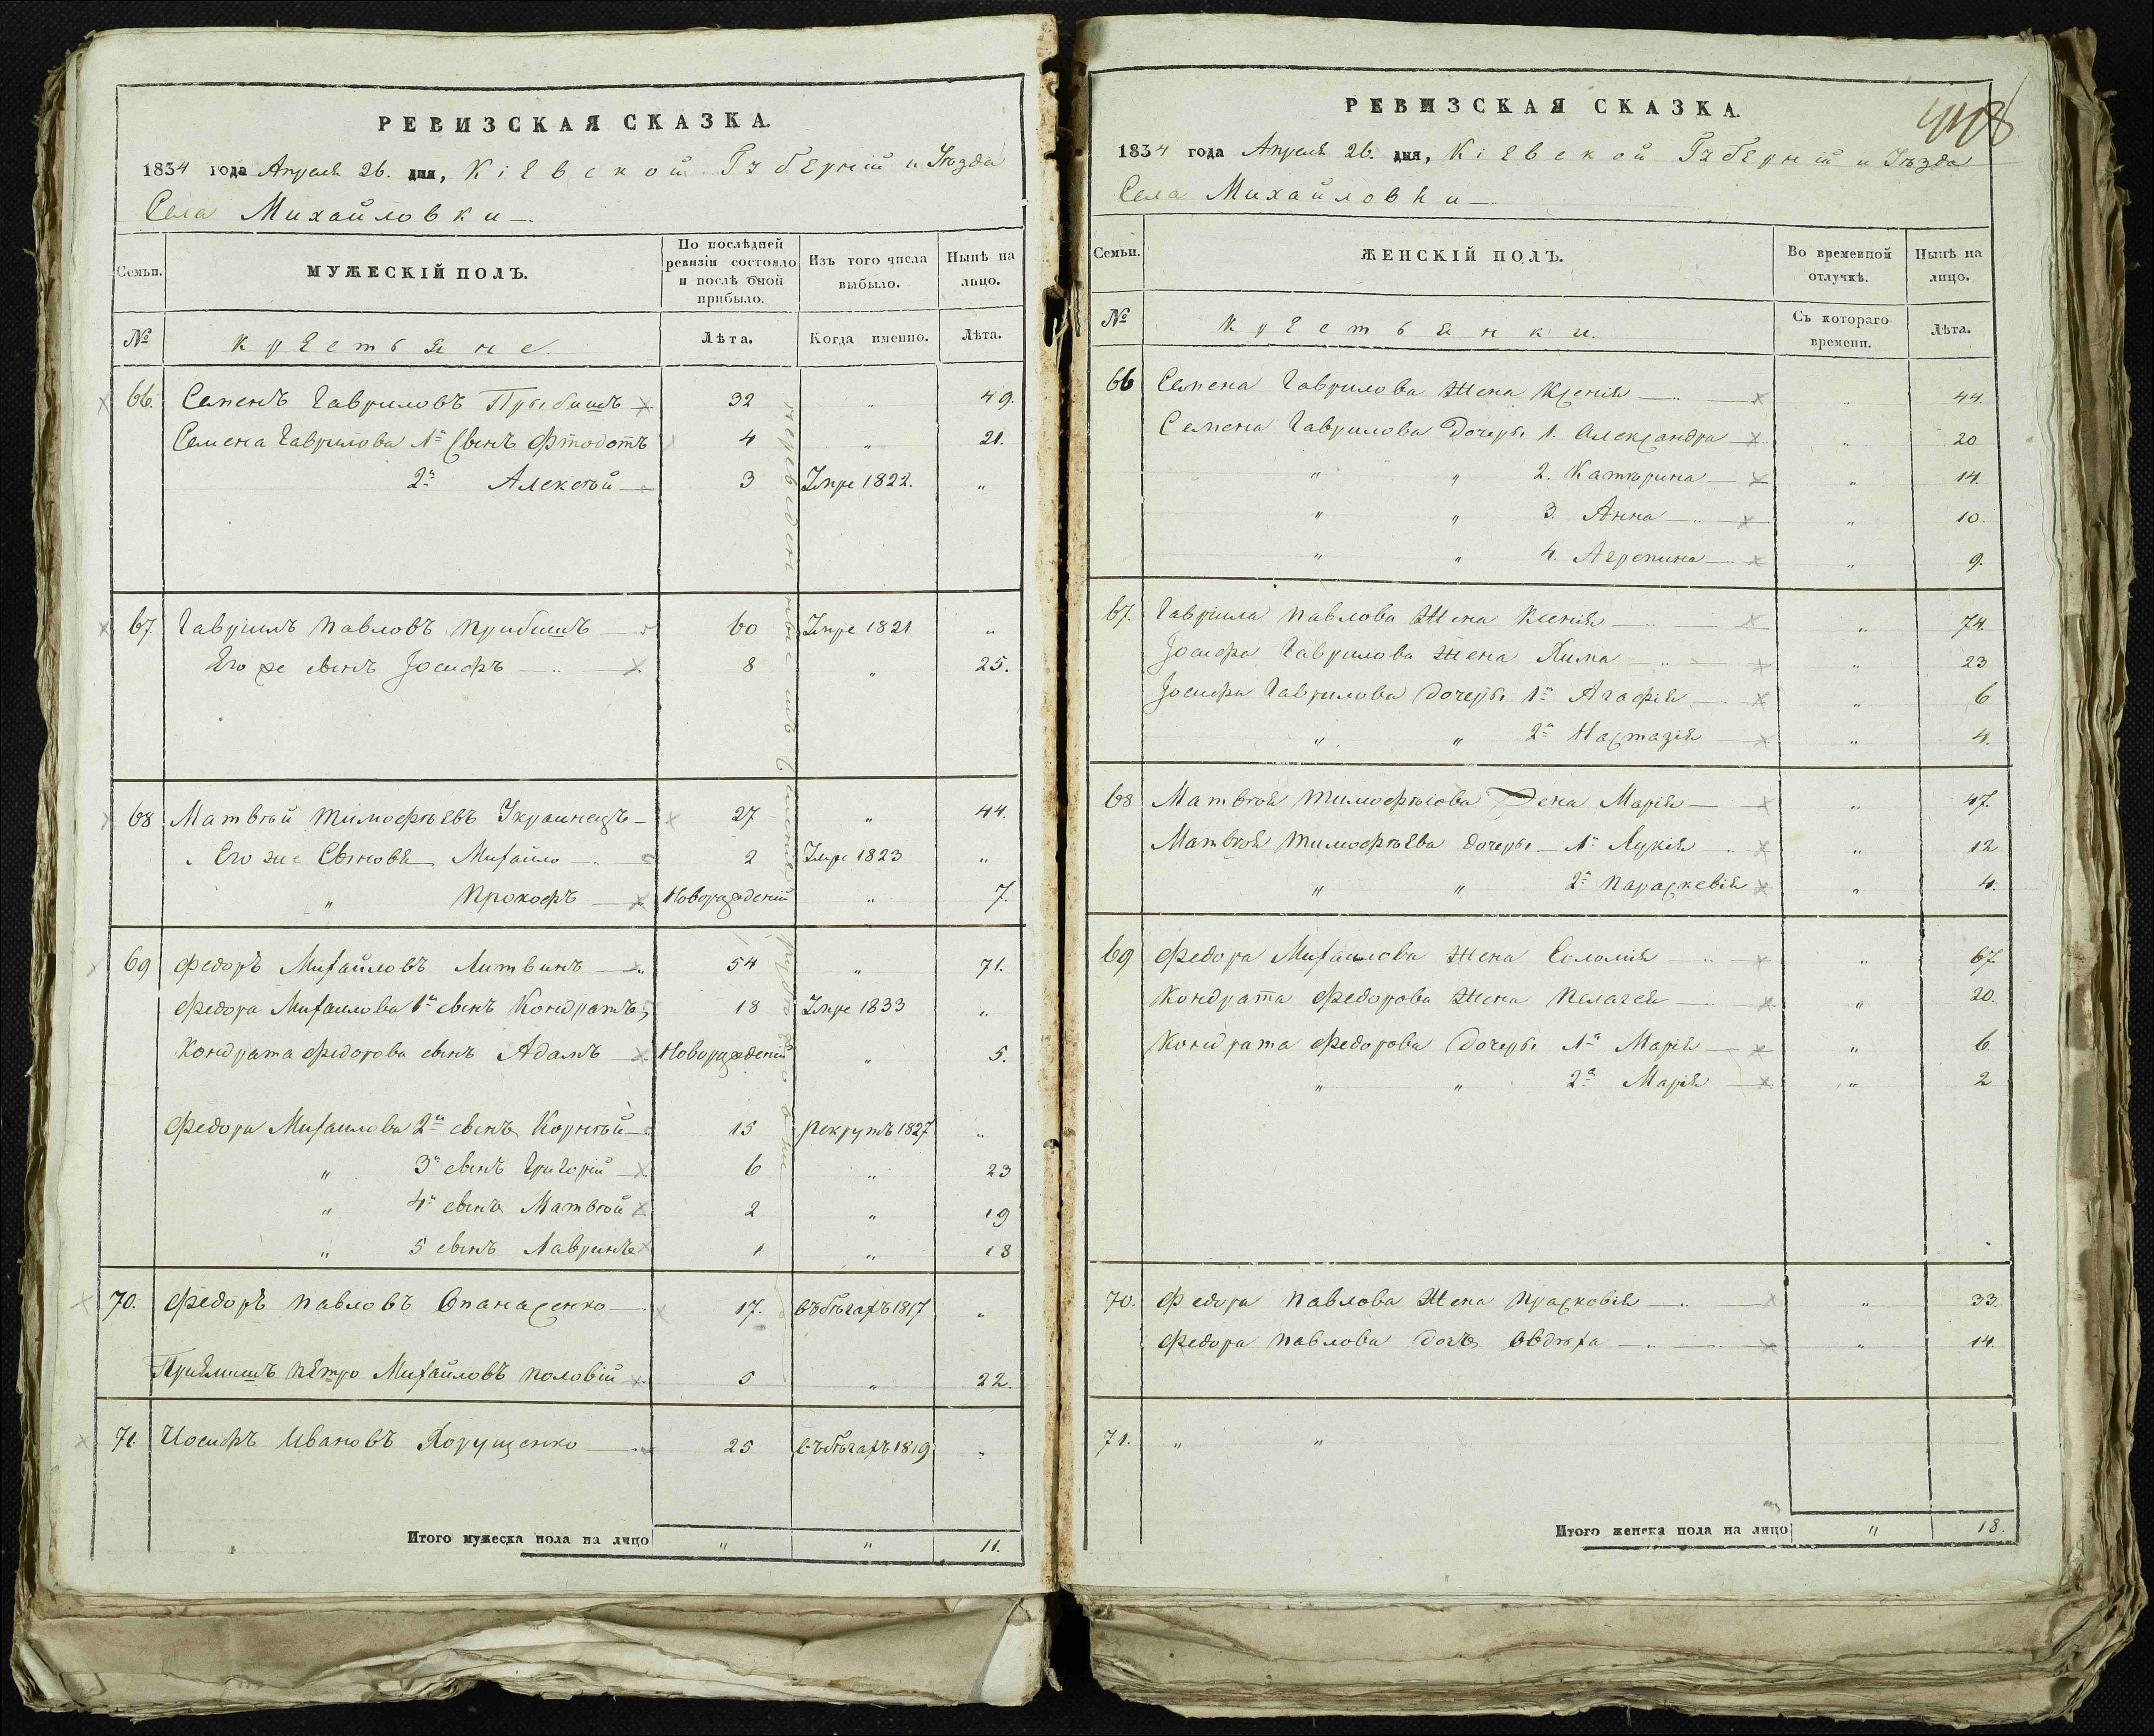 РЕВИЗСКАЯ СКАЗКА.
1834 года Апреля 26. дня, Кіевской Губерніи и Уѣзда
Села Михайловки
Семьи. МУЖЕСКІЙ ПОЛЪ. По послѣдней ревизіи состояло и послѣ оной прибыло. Изъ того числа выбыло. Нынѣ на лицо.
№ Крестьяне. Лѣта. Когда именно. Лѣта.
66. Семенъ Гавриловъ Прыбишъ 32 " 49.
Семена Гаврилова 1й Сынъ Фтодотъ 4 " 21.
2й Алексѣй 3 Умре 1822. "
67. Гавріилъ Павловъ Прибишъ 60 Умре 1821 "
Его же сынъ Іосифъ 8 " 25.
68 Матвѣй Тимофѣевъ Украинецъ 27 " 44.
Его же Сыновя Михайло 2 Умре 1823 "
" Прокофъ Новорожденій " 7.
69 Федоръ Михайловъ Литвинъ 54 " 71.
Федора Михаилова 1й сынъ Кондратъ 18 Умре 1833 "
Кондрата Федорова сынъ Адамъ Новорожденій " 5.
Федора Михаилова 2й сынъ Корнѣй 15 Рекрутъ 1827 "
" 3й сынъ Григорій 6 " 23
" 4й сынъ Матвѣй 2 " 19
" 5 сынъ Лавринъ 1 " 18
70. Федоръ Павловъ Опанасенко 17. въ бѣгахъ 1817 "
Пріемишъ Петро Михайловъ Половій 5 " 22.
71. Иосифъ Ивановъ Хорущенко 25 въ бѣгахъ 1819 "
Итого мужеска пола на лицо " " 11.
448
РЕВИЗСКАЯ СКАЗКА.
1834 года Апреля 26. дня, Кіевской Губерніи и Уѣзда
Села Михайловки
Семьи. ЖЕНСКІЙ ПОЛЪ. Во временной отлучкѣ. Нынѣ на лицо.
№ Крестьянки. Съ котораго времени. Лѣта.
66 Семена Гаврилова Жена Ксенія " 44.
Семена Гаврилова Дочеры 1. Александра " 20
" " 2. Катѣрина " 14.
" " 3. Анна " 10.
" " 4. Агрепина " 9.
67. Гавріила Павлова Жена Ксенія " 74.
Іосифа Гаврилова Жена Хима " 23
Іосифа Гаврилова Дочеры 1я Агафія " 6
" " 2я Настазія " 4.
68 Матвѣя Тимофѣіова Жена Марія " 47.
Матвѣя Тимофѣева дочеры 1я Лукія " 12
" " 2я Параскевія " 4.
69 Федора Михаилова Жена Соломія " 67
Кондрата Федорова Жена Пелагея " 20.
Кондрата Федорова Дочеры 1я Марія " 6.
" " 2я Марія " 2
70. Федора Павлова Жена Прасковія " 33.
Федора Павлова дочъ Овдѣха " 14.
71. " "
Итого женска пола на лицо " 18.